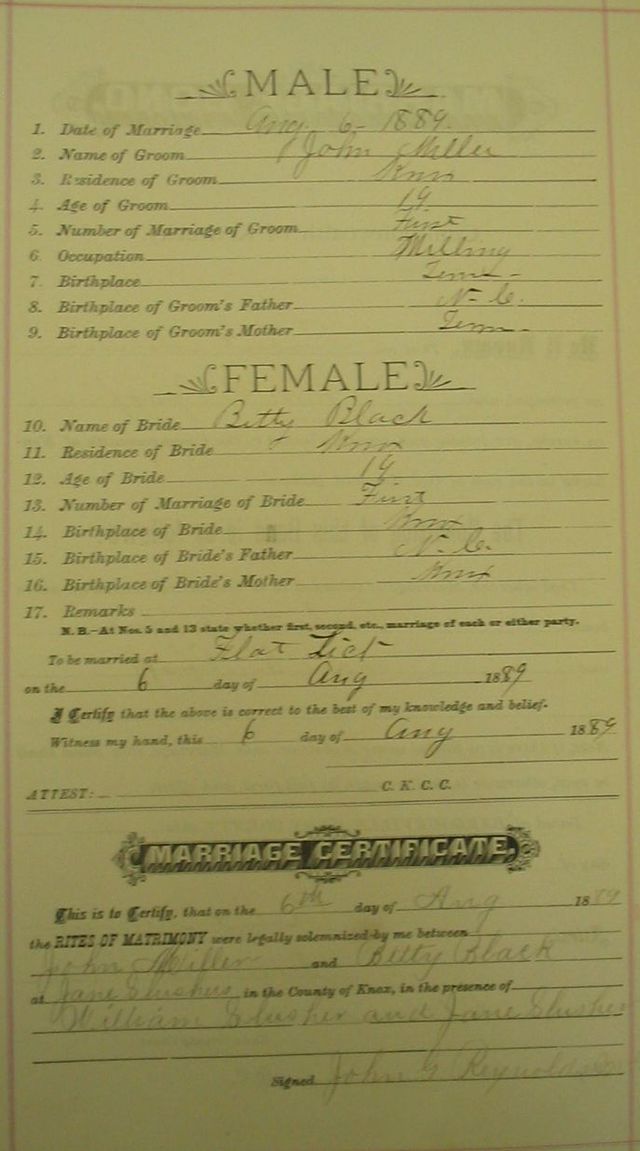 MALE
1. Date of Marriage Aug. 6- 1889.
2. Name of Groom John Miller
3. Residence of Groom Knox
4. Age of Groom 19
5. Number of Marriage of Groom First
6. Occupation Milling
7. Birthplace Tenn-
8. Birthplace of Groom's Father N- C.
9. Birthplace of Groom's Mother Tenn
FEMALE
10. Name of Bride Betty Black
11. Residence of Bride Knox
12. Age of Bride 19
13. Number of Marriage of Bride First
14. Birthplace of Bride Knox
15. Birthplace of Bride's Father N. C.
16. Birthplace of Bride's Mother Knox
17. Remarks
N. B.—At Nos. 5 and 13 state whether first, second, etc., marriage of each or either party.
To be married at Flat Lick
on the 6 day of Aug 1889
I Certify that the above is correct to the best of my knowledge and belief.
Witness my hand, this 6 day of Aug 1889
ATTEST: C. K. C. C.
MARRIAGE CERTIFICATE.
This is to Certify, that on the 6th day of Aug 1889
the RITES OF MATRIMONY were legally solemnized by me between
John Miller and Betty Black
at Jane Slushers in the County of Knox, in the presence of
William Slusher and Jane Slusher
Signed John G Reynolds